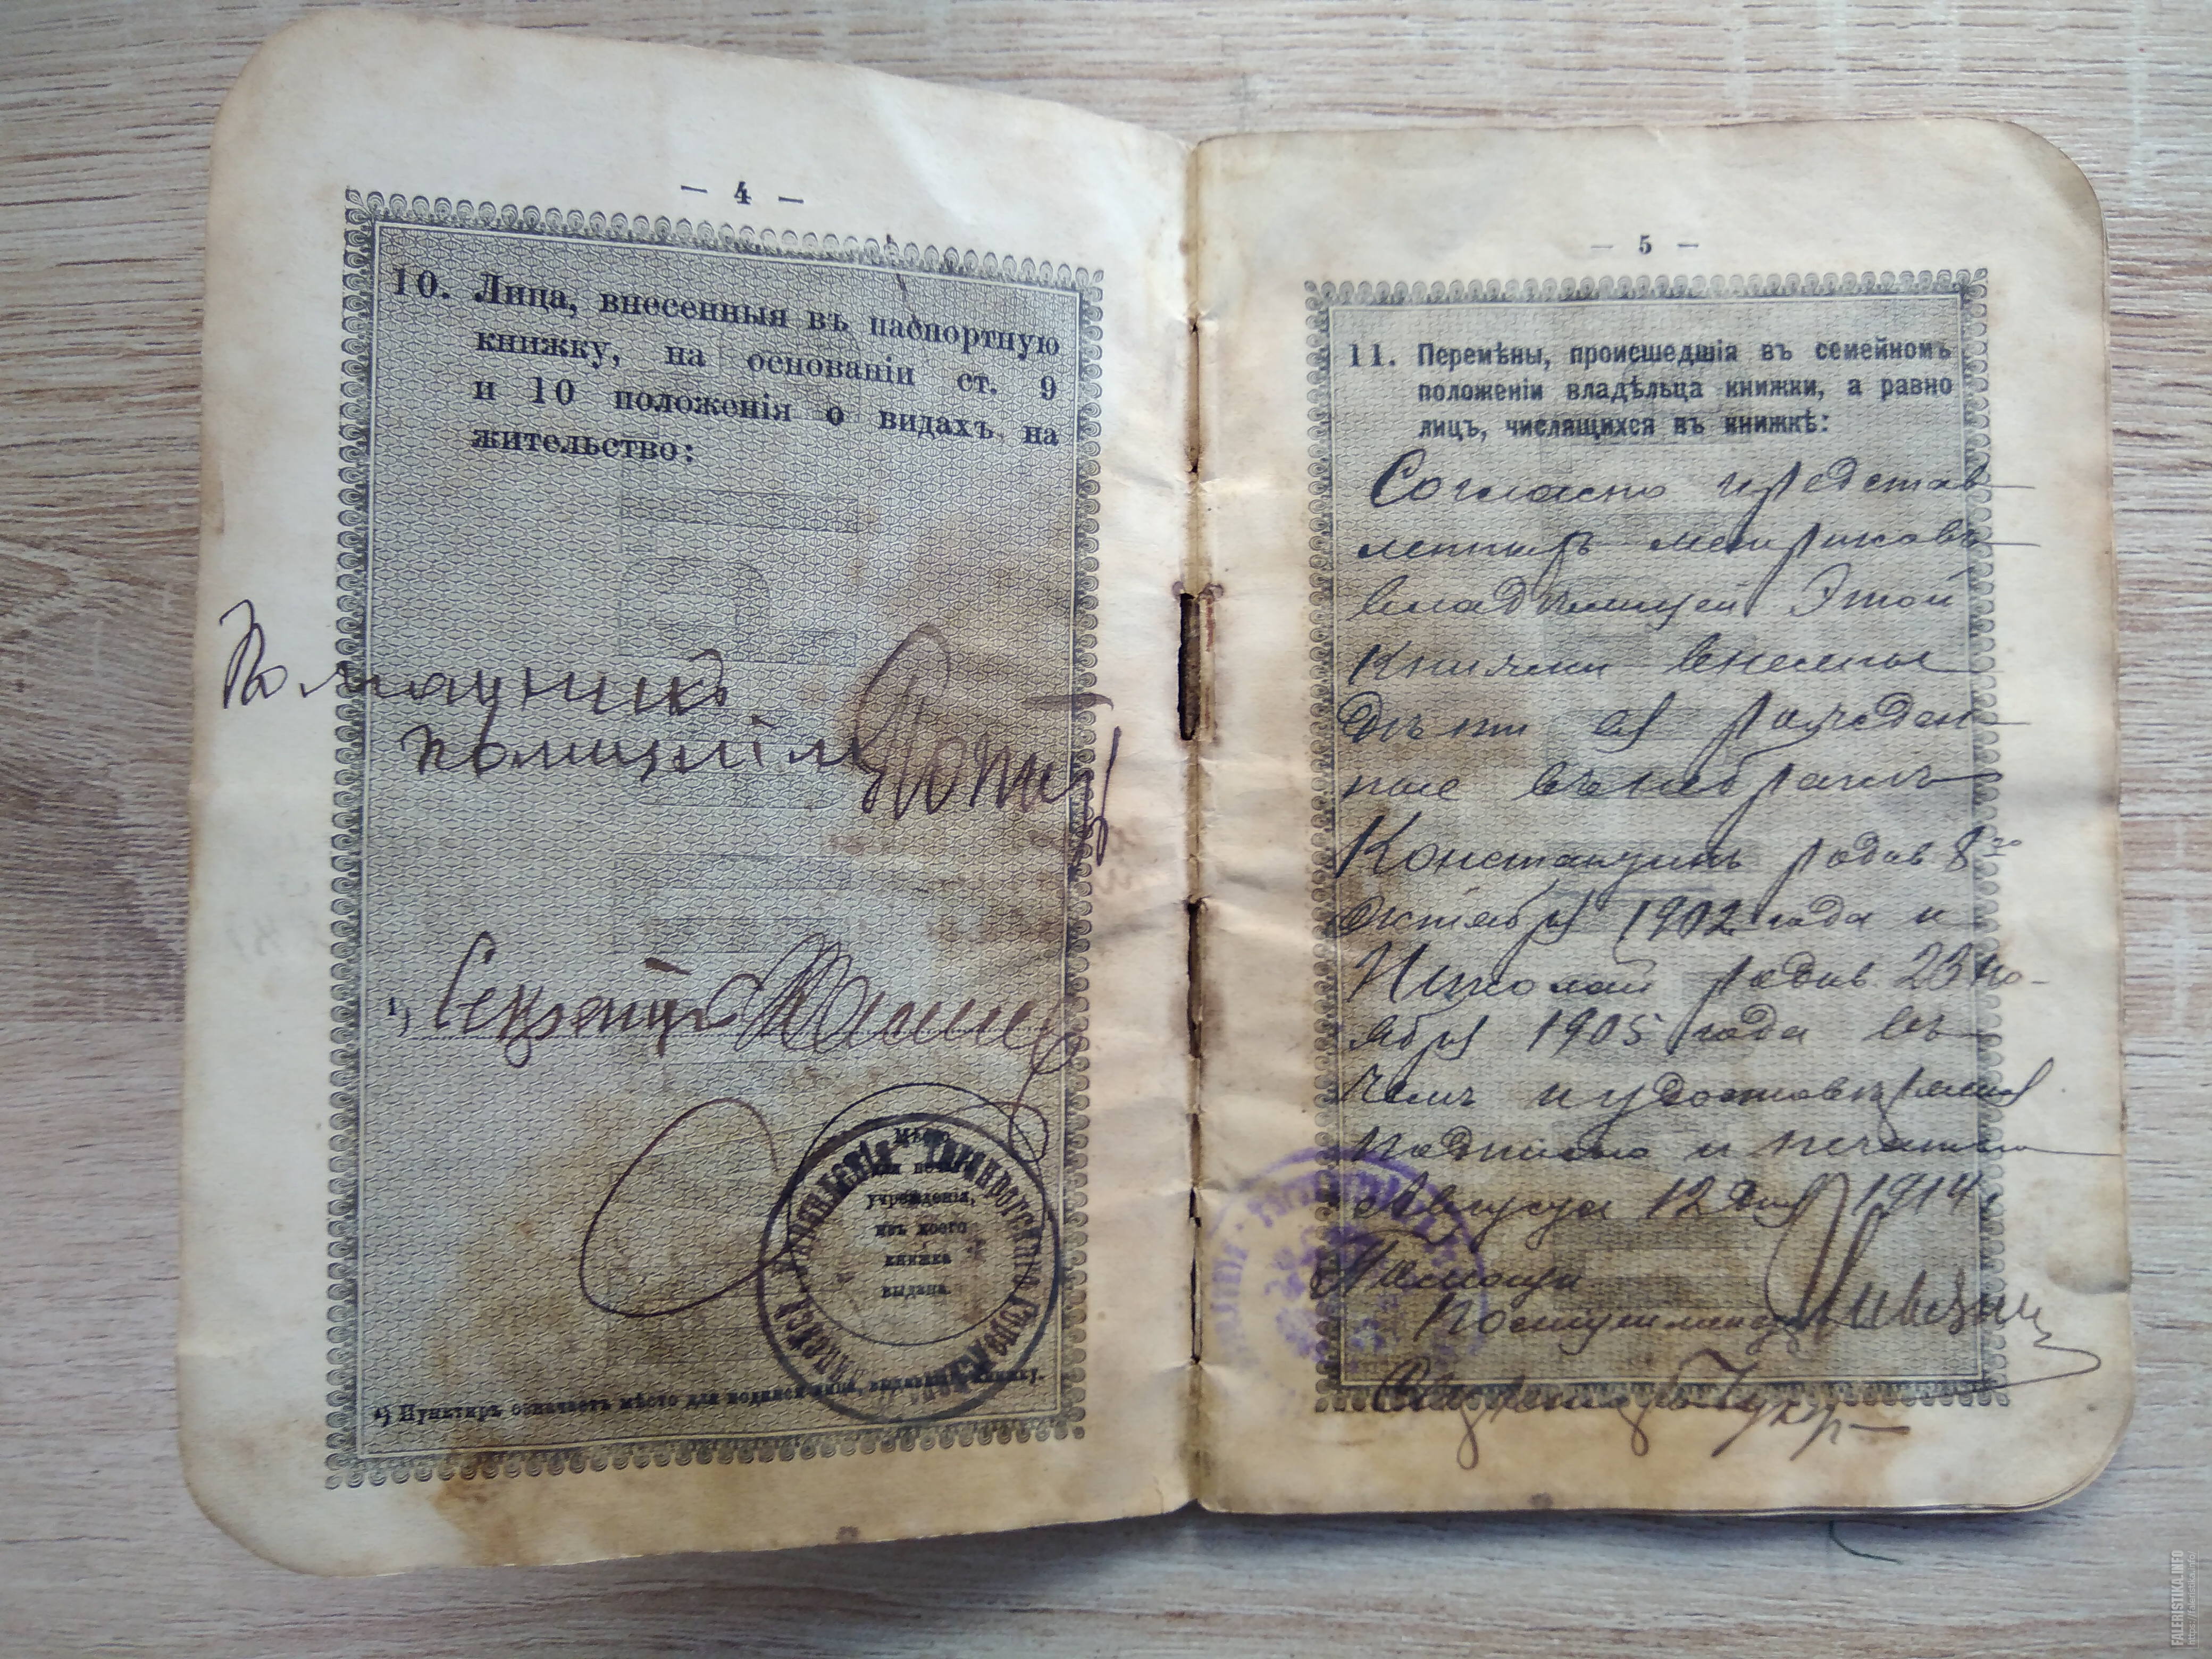 — 4 —
10. Лица, внесенныя въ паспортную
книжку, на основаніи ст. 9
и 10 положенія о видахъ на
жительство:
Помощникъ
¹)
Секретарь
Мѣсто
для печати
учрежденія,
изъ коего
книжка
выдана.
Таганрогскаго
¹) Пунктиръ означаетъ мѣсто для подписи лица, выдавшаго книжку.
— 5 —
11. Перемѣны, происшедшія въ семейномъ
положеніи владѣльца книжки, а равно
лицъ, числящихся въ книжкѣ:
Согласно представ
леннымъ метрикамъ
владѣлицей этой
книжки внесены
дѣти ея рожден
ные внѣ брака
Константинъ родив 8го
октября 1902 года и
Николай родив 23 но-
ября 1905 года въ
чемъ и удостовѣряется
подписью и печатью
Августа 12 дня 1914 г
Помощн
Секретарь
FALERISTIKA.INFO
https://faleristika.info/